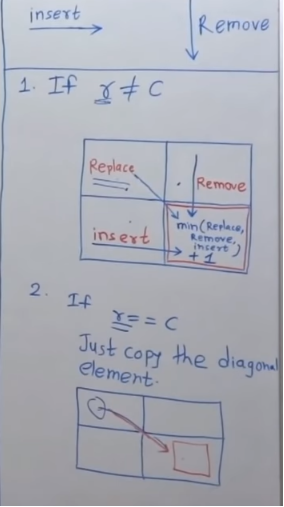 insert
Remove
1. If r ≠ C
Replace
Remove
insert
min(Replace,
Remove,
insert)
+ 1
2. If
r == C
Just copy the diagonal
element.